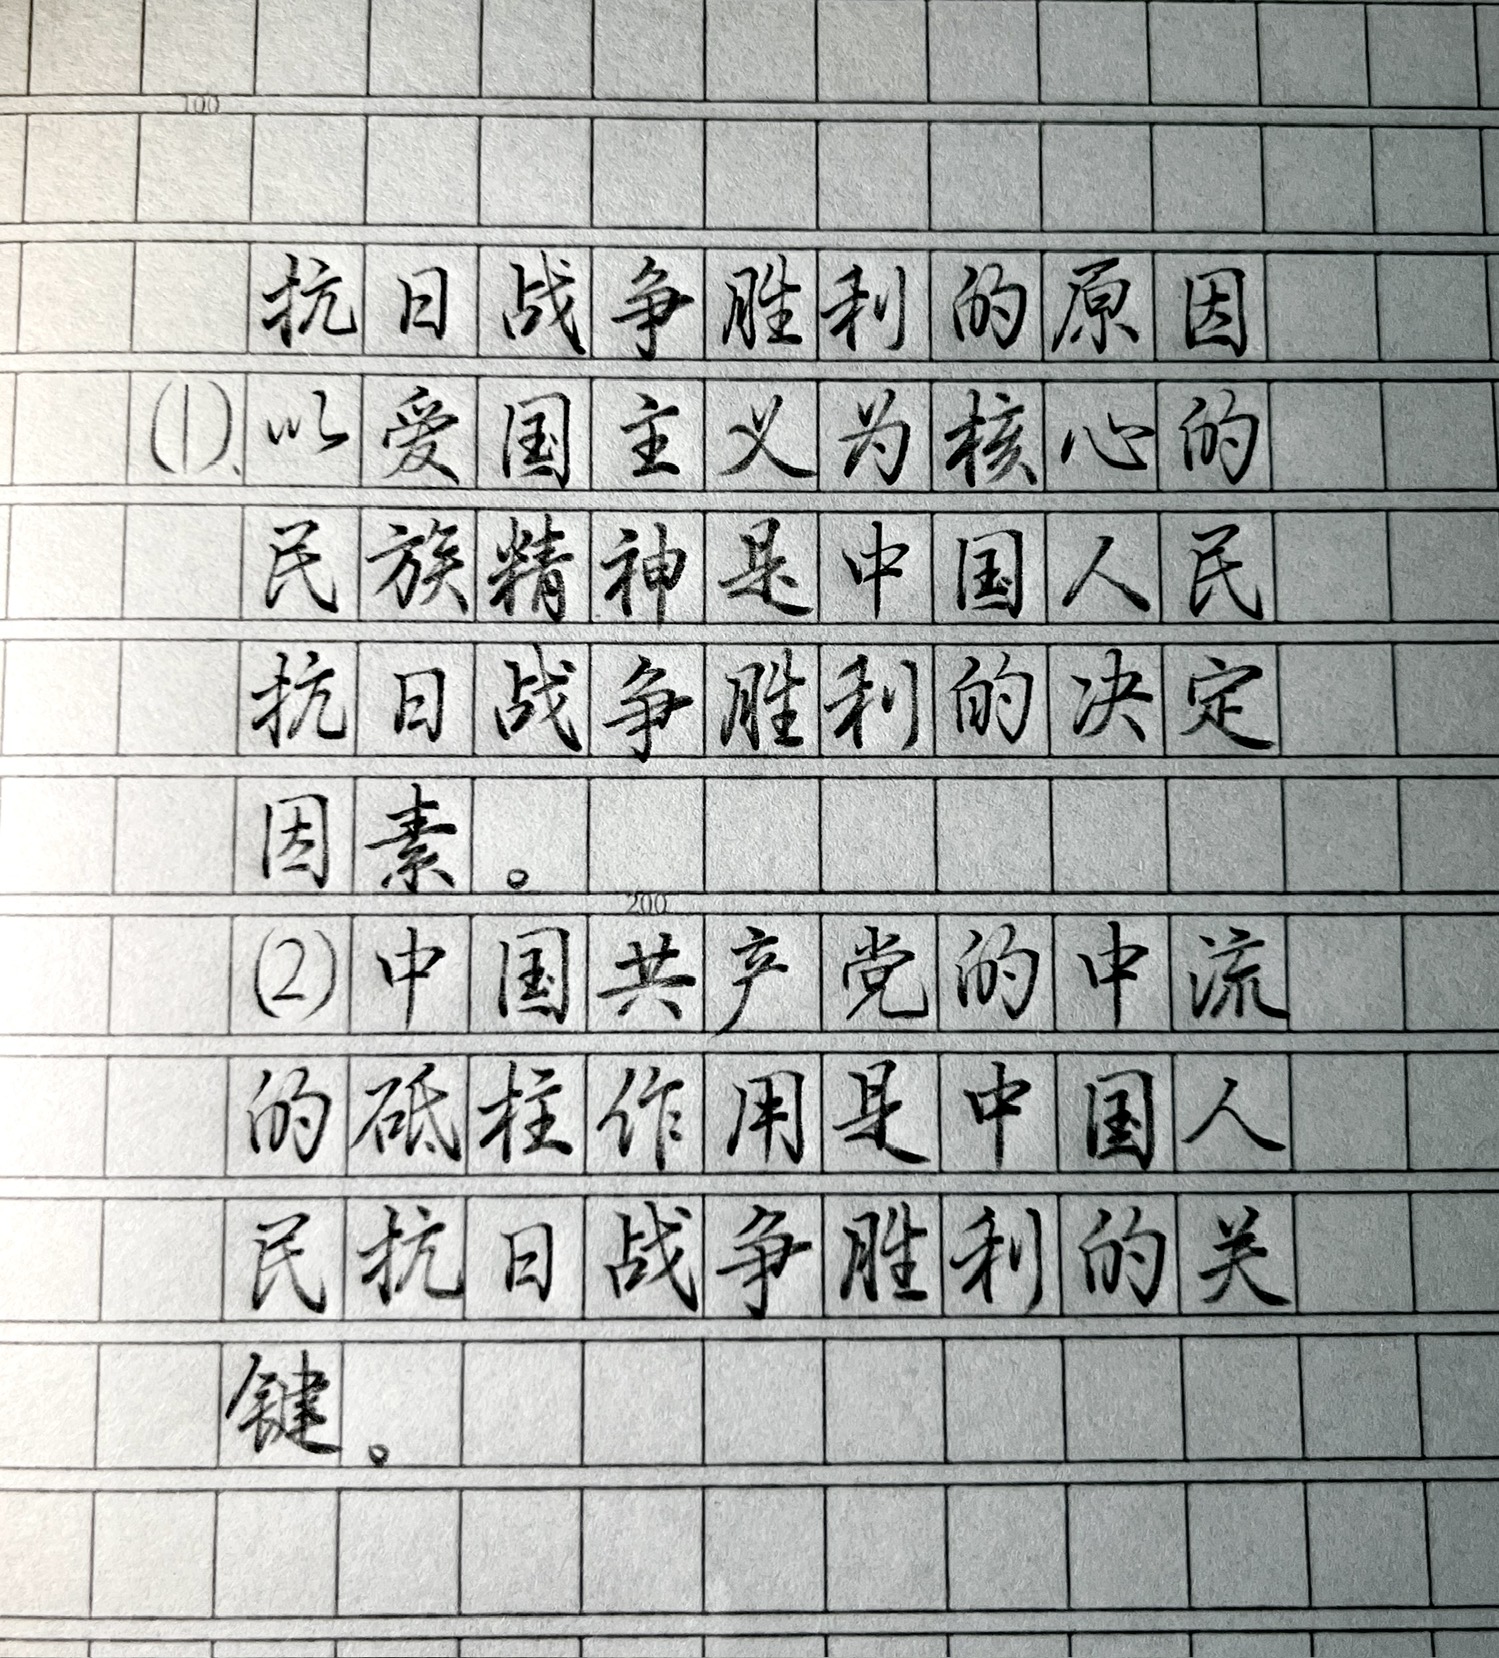 100
抗日战争胜利的原因
(1)、以爱国主义为核心的
民族精神是中国人民
抗日战争胜利的决定
因素。
200
(2)中国共产党的中流
的砥柱作用是中国人
民抗日战争胜利的关
键。